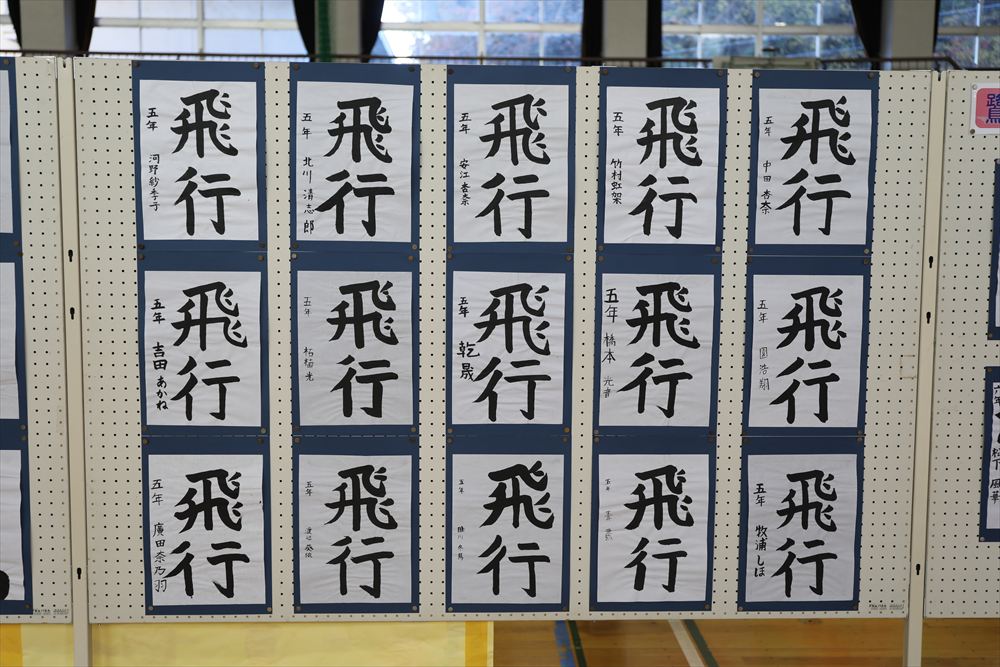 飛行
五年 河野紗季子
飛行
五年 北川 清志郎
飛行
五年 安江杏奈
飛行
五年 竹村虹架
飛行
五年 中田 杏奈
飛行
五年 吉田 あかね
飛行
五年
飛行
五年 乾 晟
飛行
五年 橋本 光音
飛行
五年 圓 浩翔
飛行
五年 廣田奈乃羽
飛行
五年
飛行
五年
飛行
五年
飛行
五年 牧浦しほ
鷺
六年 松下 風華